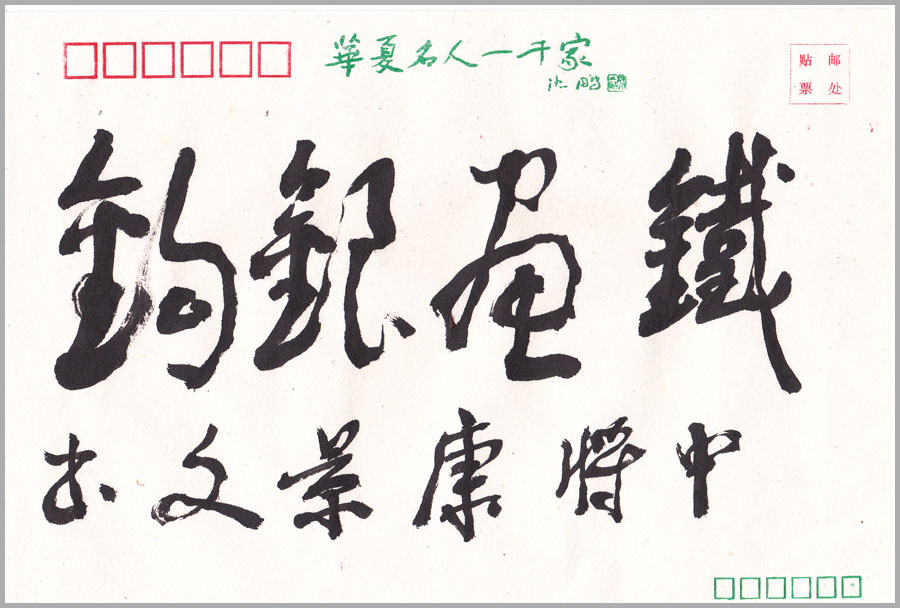 華夏名人一千家
沈鹏
贴邮
票处
鐵畫銀鉤
中將康景文書